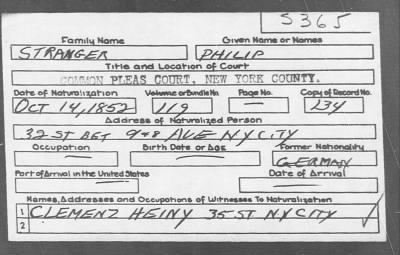 S365
Family Name Given Name or Names
STRANGER PHILIP
Title and Location of Court
COMMON PLEAS COURT, NEW YORK COUNTY.
Date of Naturalization Volume or Bundle No. Page No. Copy of Record No.
OCT 14, 1852 119 — 234
Address of Naturalized Person
32 ST BET 9 & 8 AVE N Y CITY
Occupation Birth Date or Age Former Nationality
— — GERMAN
Port of Arrival in the United States Date of Arrival
— —
Names, Addresses and Occupations of Witnesses To Naturalization
1 CLEMENZ HEINY 35 ST. N Y CITY
2